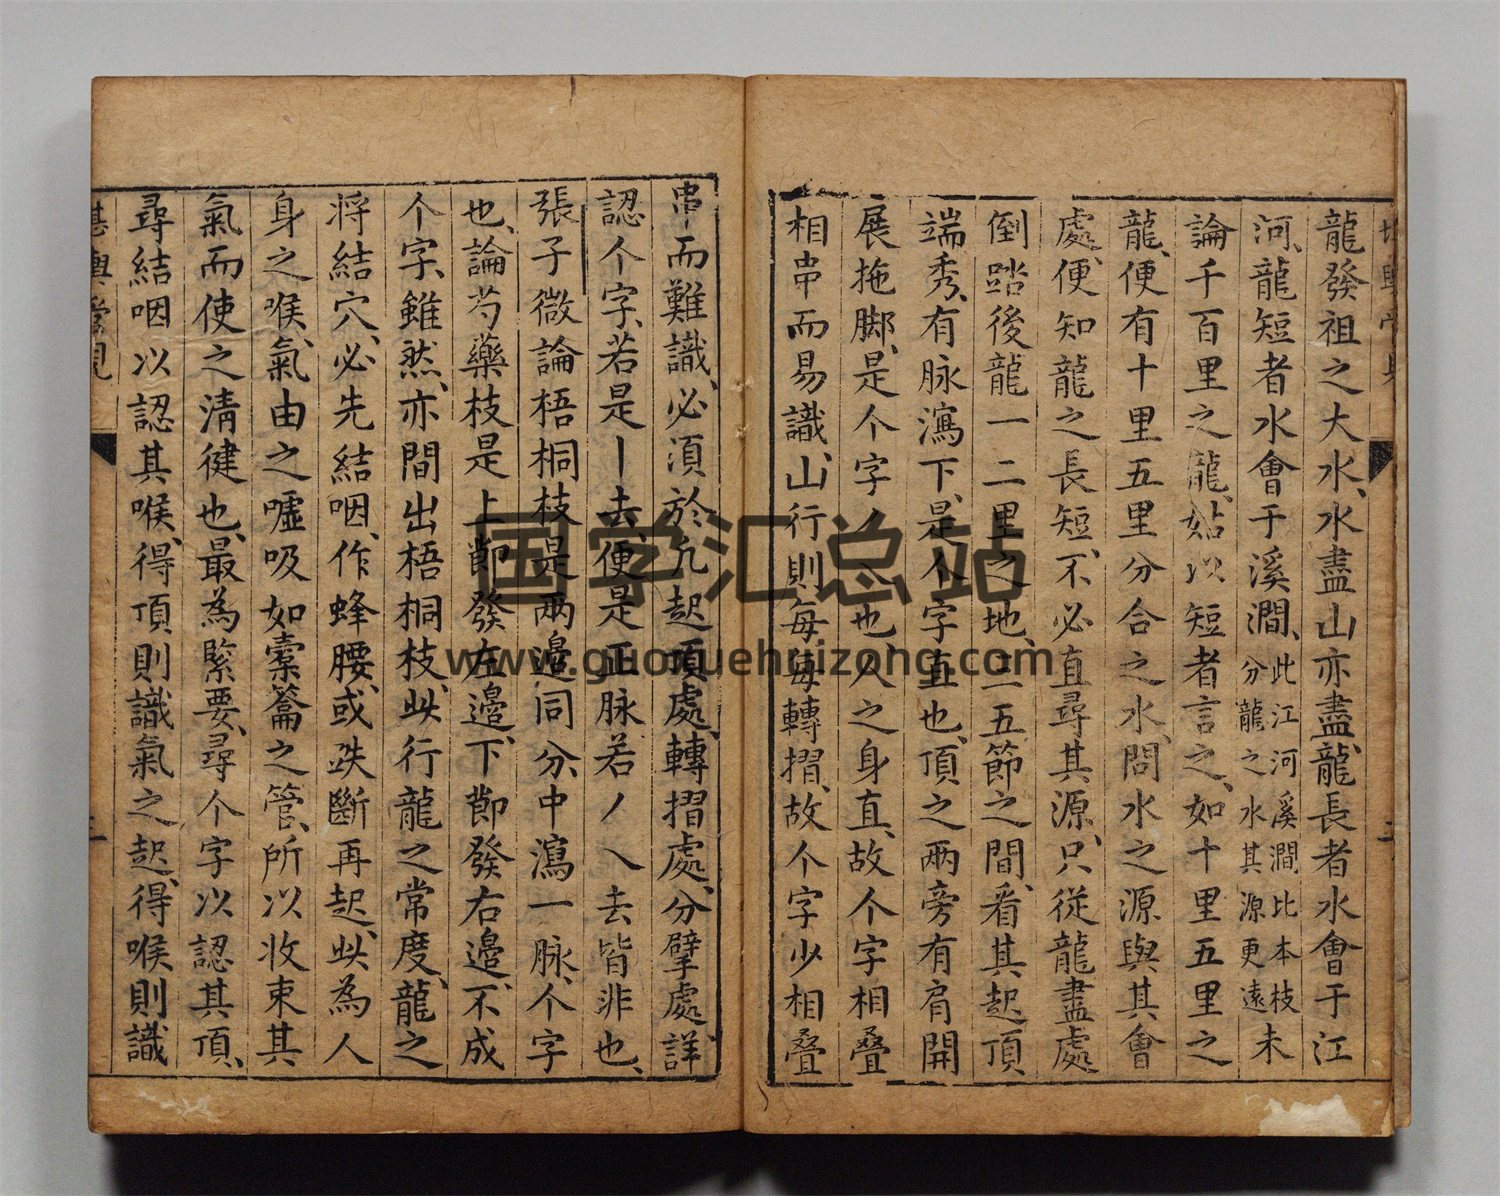 龍發祖之大水、水盡山亦盡、龍長者水會于江
河、龍短者水會于溪澗、此江河溪澗比本枝分龍之水其源更遠未
論千百里之龍、姑以短者言之、如十里五里之
龍、便有十里五里分合之水、問水之源與其會
處、便知龍之長短、不必直尋其源、只從龍盡處
倒踏後龍一二里之地、三五節之間、看其起頂
端秀、有脉瀉下、是个字直也、頂之兩旁有肩開
展拖脚、是个字ノ乀也、人之身直、故个字相疊
相串而易識、山行則每每轉摺、故个字少相疊
串而難識、必須於凡起頂處、轉摺處、分擘處、詳
認个字、若是丨去、便是正脉、若ノ乀去皆非也、
張子微論梧桐枝是兩邊同分、中瀉一脉、个字
也、論芍藥枝是上節發左邊、下節發右邊、不成
个字、雖然、亦間出梧桐枝、此行龍之常度、龍之
將結穴、必先結咽、作蜂腰、或跌斷再起、此為人
身之喉、氣由之嘘吸如橐籥之管、所以收束其
氣而使之清健也、最為緊要、尋个字以認其頂、
尋結咽以認其喉、得頂則識氣之起、得喉則識
堪輿管見
二
三
国学汇总站
www.guoxuehuizong.com